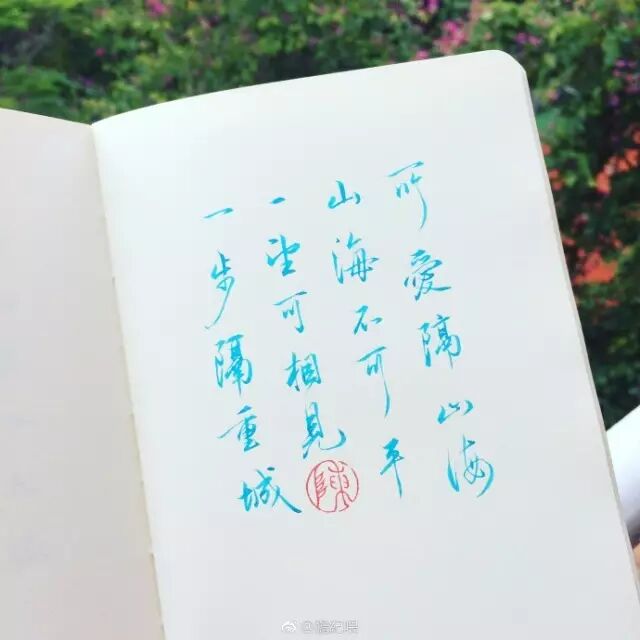 所愛隔山海
山海不可平
一望可相見
一步隔重城
陳